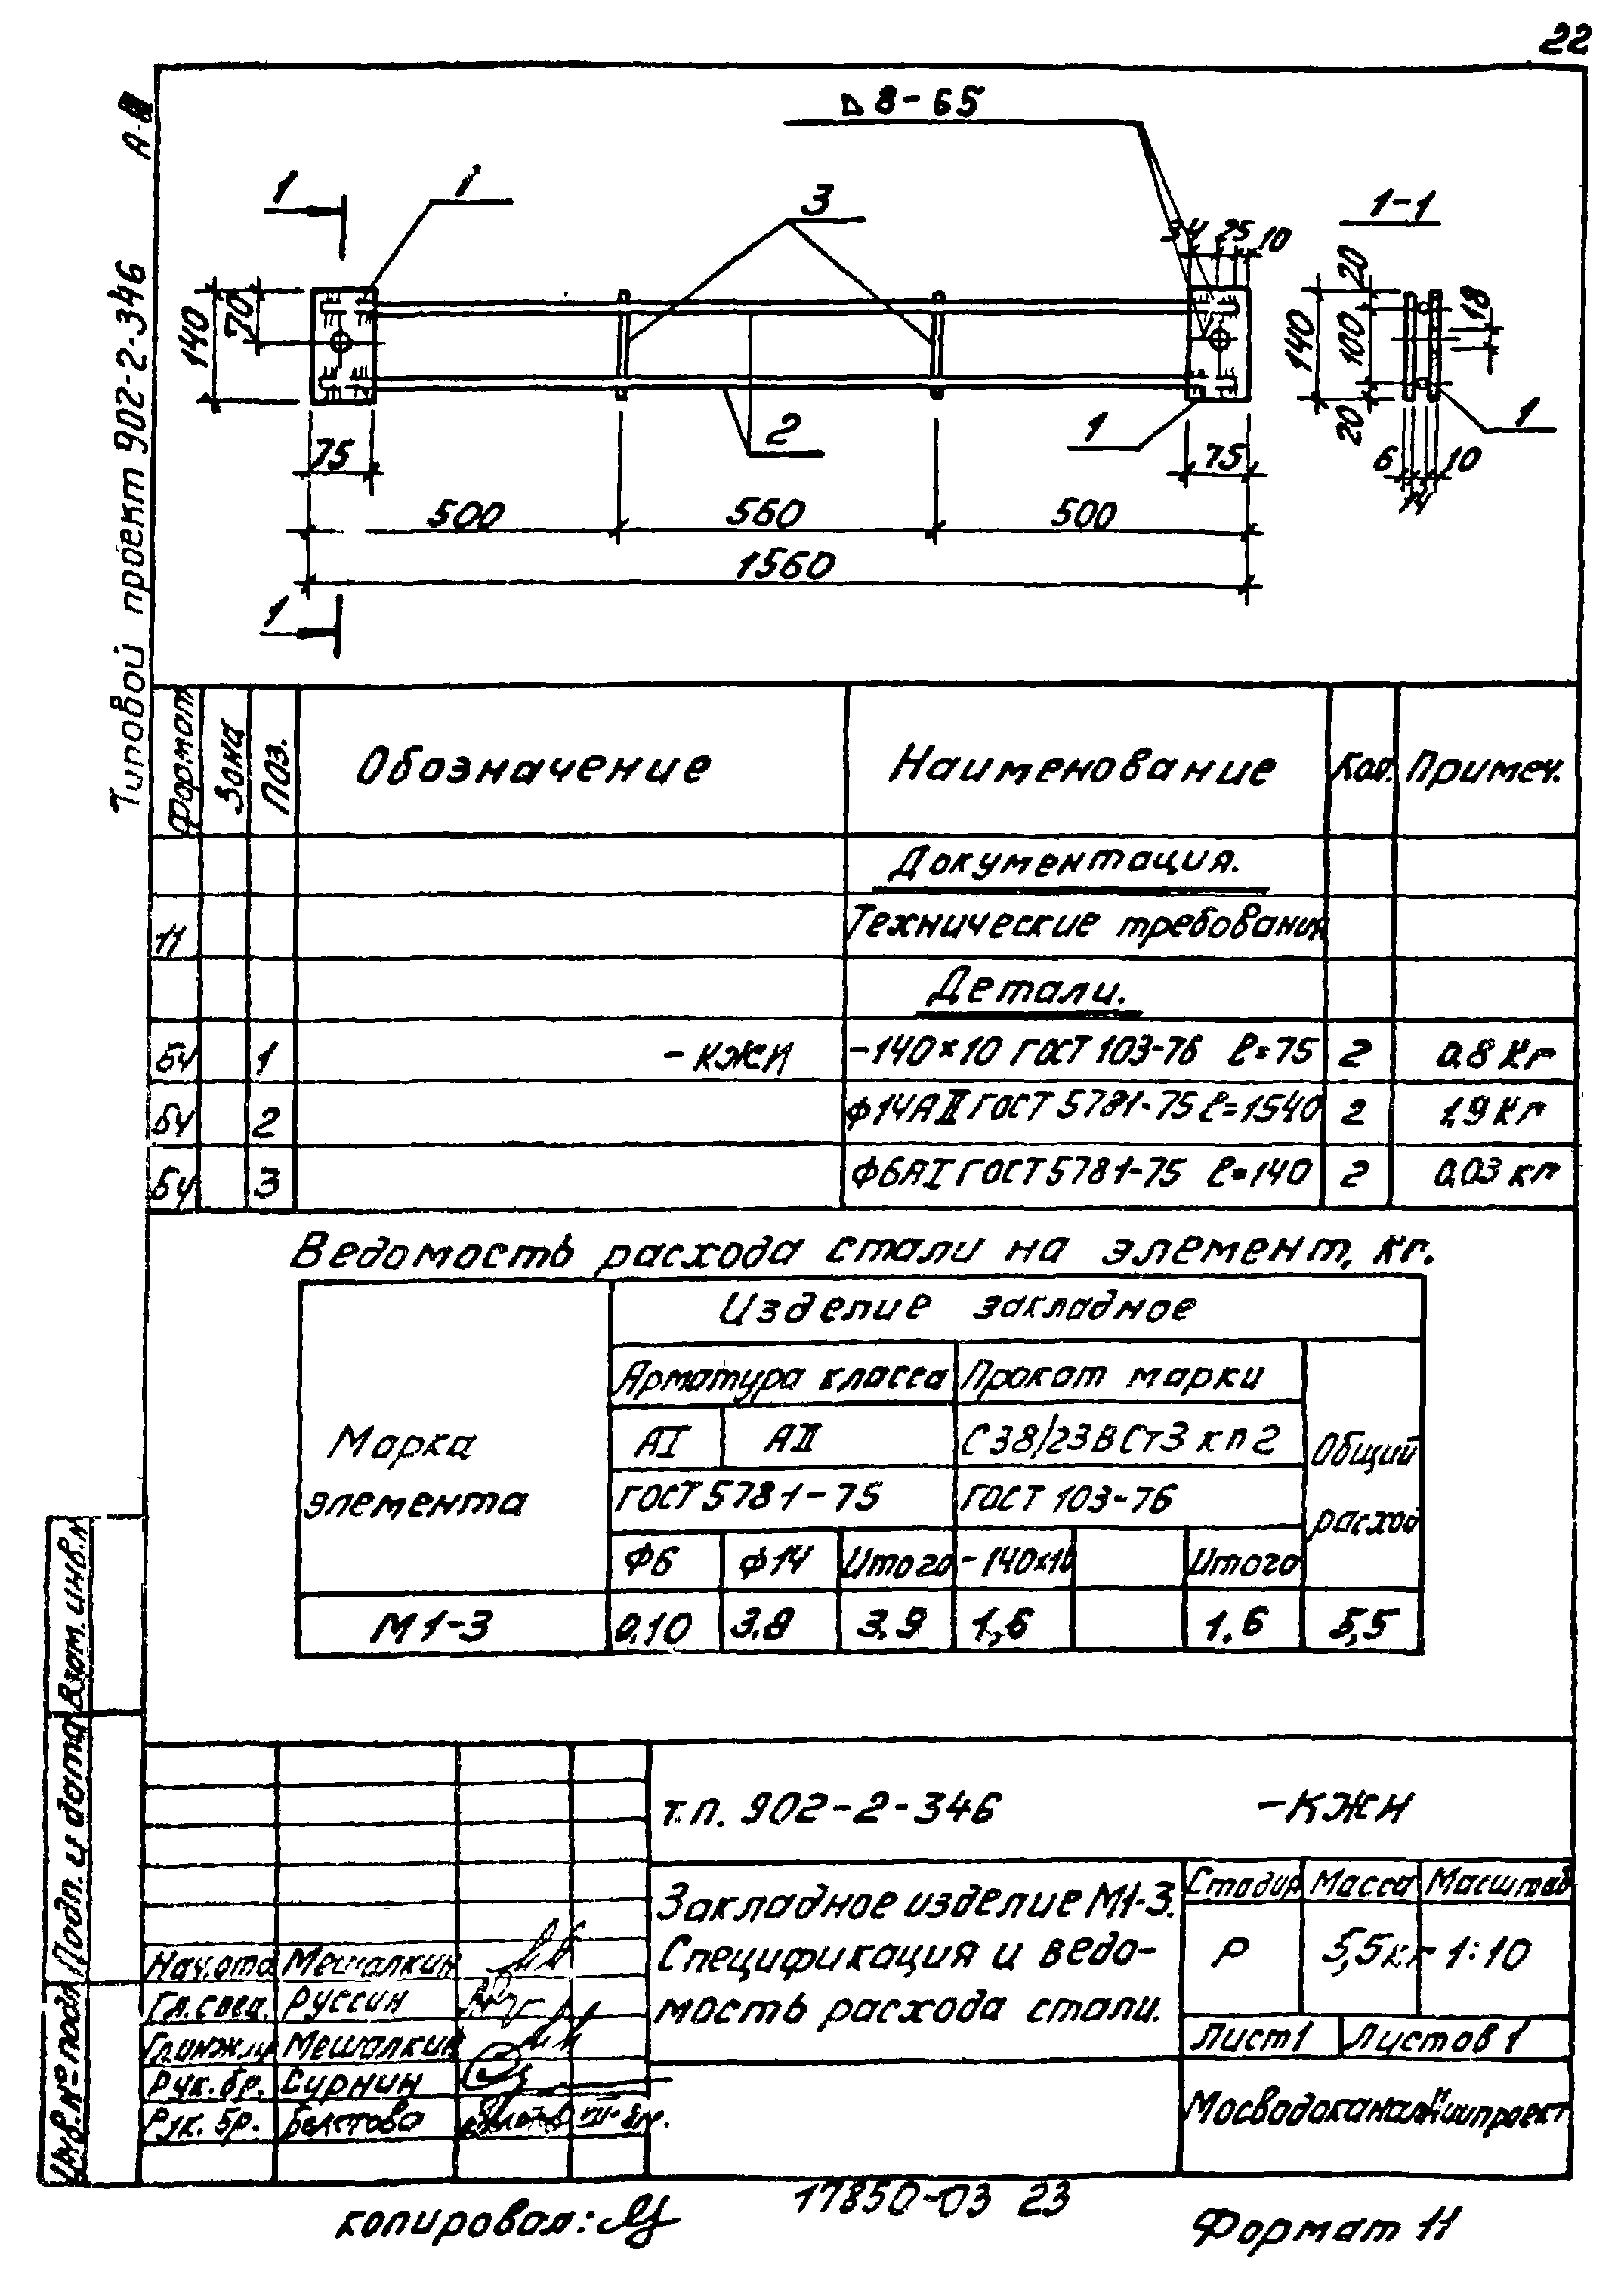 22
Типовой проект 902-2-346
8-65
1
1
3
34 25 10
1-1
140
70
20
140
100
18
20
75
2
1
75
1
6
14
10
500
560
500
1560
1
Формат
Зона
Поз.
Обозначение
Наименование
Кол.
Примеч.
Документация.
11 Технические требования
Детали.
БЧ 1 -КЖИ -140×10 ГОСТ 103-76 ℓ=75 2 0,8 Кг
БЧ 2 ф14АII ГОСТ 5781-75 ℓ=1540 2 1,9 Кг
БЧ 3 Ф6АI ГОСТ 5781-75 ℓ=140 2 0,03 кг
Ведомость расхода стали на элемент, кг.
Марка элемента
Изделие закладное
Арматура класса
Прокат марки
Общий расход
АI
АII
С38/23ВСт3кп2
ГОСТ 5781-75
ГОСТ 103-76
Ф6
ф14
Итого
-140х10
Итого
М1-3 0,10 3.8 3,9 1,6 1.6 5,5
Взам. инв.н
Подп. и дата
Инв.№ подл
т.п. 902-2-346 -КЖИ
Закладное изделие М1-3.
Спецификация и ведо-
мость расхода стали.
Стадия
Масса
Масштаб
Р
5,5кг
1:10
Лист1
Листов 1
Нач.отд Мешалкин
Гл.спец. Руссин
Гл.инж.пр Мешалкин
Рук. бр. Сурнин
Рук. бр.
копировал:
17850-03 23
Формат 11